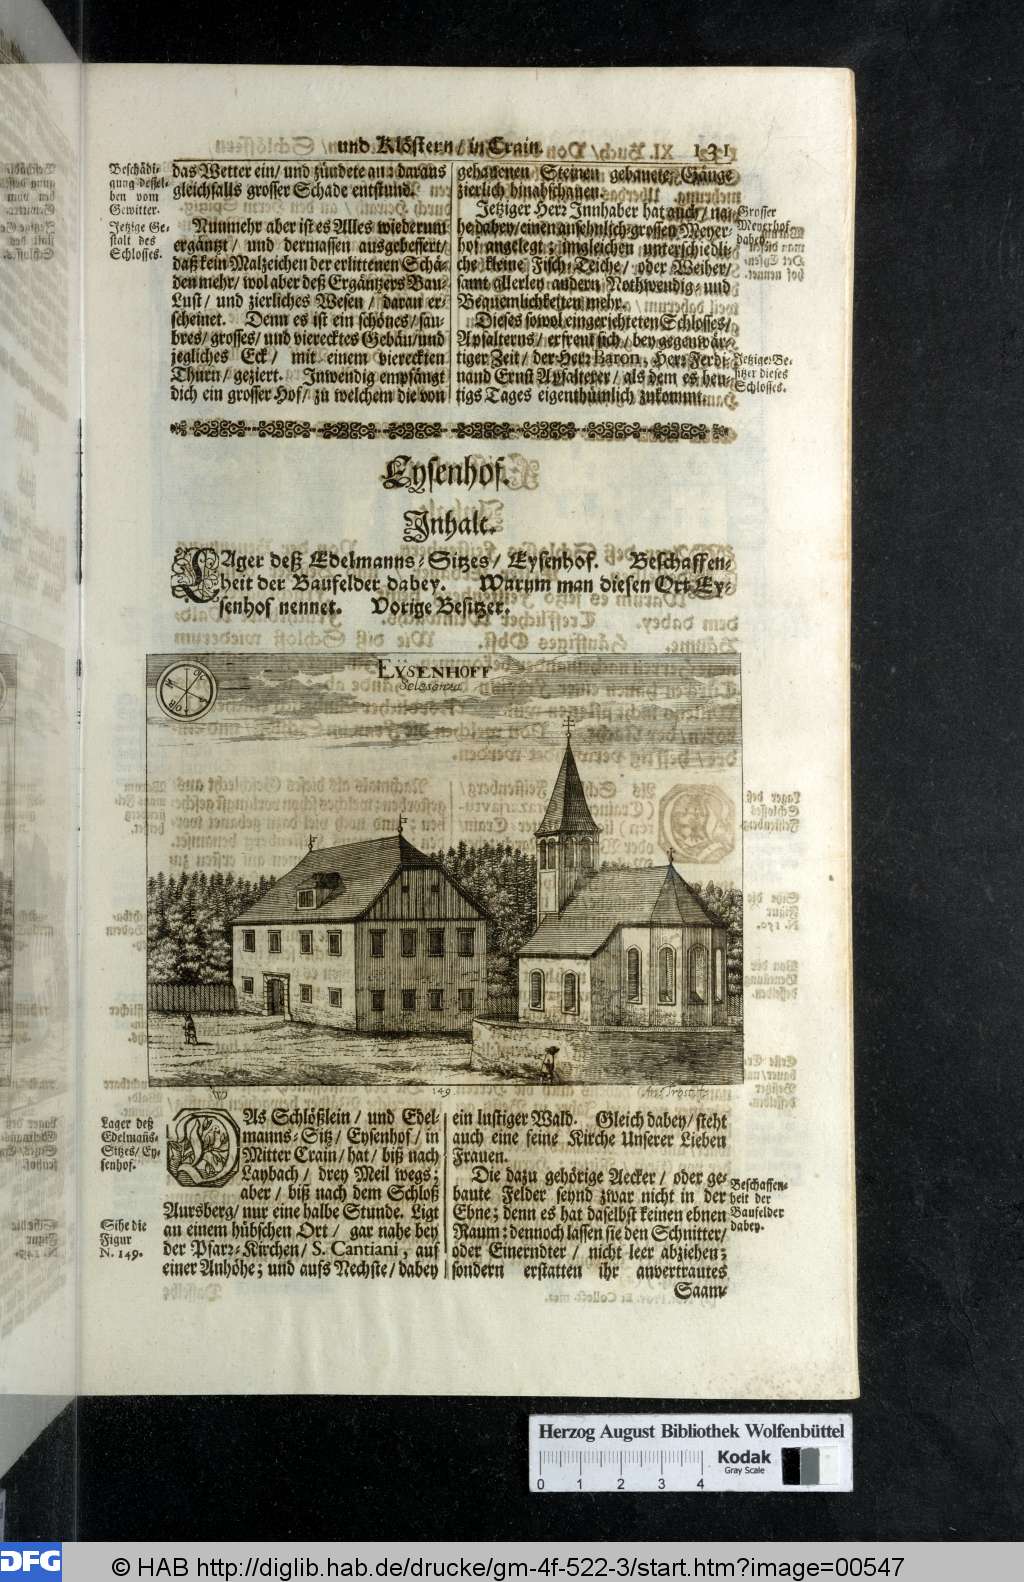 und Klöstern / in Crain. 131
Beschädi-
gung dessel-
ben vom
Gewitter.
Jetzige Ge-
stalt des
Schlosses.
das Wetter ein / und zündete an: daraus
gleichfalls grosser Schade entstund.
Nunmehr aber ist es Alles wiederum
ergäntzt / und dermassen ausgebessert /
daß kein Malzeichen der erlittenen Schä-
den mehr / wol aber deß Ergäntzers Bau-
Lust / und zierliches Wesen / daran er-
scheinet. Denn es ist ein schönes / sau-
bres / grosses / und vierecktes Gebäu / und
jegliches Eck / mit einem viereckten
Thurn / geziert. Inwendig empfängt
dich ein grosser Hof / zu welchem die von
gehauenen Steinen gebauete Gänge
zierlich hinabschauen.
Jetziger Herr Innhaber hat auch / na-
he dabey / einen ansehnlich-grossen Meyer-
hof angelegt; imgleichen unterschiedli-
che kleine Fisch-Teiche / oder Weiher /
samt allerley andern Nothwendig- und
Bequemlichkeiten mehr.
Dieses so wol eingerichteten Schlosses /
Apfalterns / erfreut sich / bey gegenwär-
tiger Zeit / der Herr Baron, Herr Ferdi-
nand Ernst Apfalterer / als dem es heu-
tigs Tages eigenthümlich zukommt.
Grosser
Meyerhof
dabey.
Jetziger Be-
sitzer dieses
Schlosses.
Eysenhof.
Inhalt.
LAger deß Edelmanns-Sitzes / Eysenhof. Beschaffen-
heit der Baufelder dabey. Warum man diesen Ort Ey-
senhof nennet. Vorige Besitzer.
EYSENHOFF
Selesenza
OR
149
And: Trost f:
Lager deß
Edelmañs-
Sitzes / Ey-
senhof.
Sihe die
Figur
N. 149.
DAs Schlößlein / und Edel-
manns-Sitz / Eysenhof / in
Mitter Crain / hat / biß nach
Laybach / drey Meil wegs;
aber / biß nach dem Schloß
Aursberg / nur eine halbe Stunde. Ligt
an einem hübschen Ort / gar nahe bey
der Pfarr-Kirchen / S. Cantiani, auf
einer Anhöhe; und aufs Nechste / dabey
ein lustiger Wald. Gleich dabey / steht
auch eine feine Kirche Unserer Lieben
Frauen.
Die dazu gehörige Aecker / oder ge-
baute Felder seynd zwar nicht in der
Ebne; denn es hat daselbst keinen ebnen
Raum: dennoch lassen sie den Schnitter /
oder Einerndter / nicht leer abziehen;
sondern erstatten ihr anvertrautes
Saam-
Beschaffen-
heit der
Baufelder
dabey.
Herzog August Bibliothek Wolfenbüttel
Kodak
Gray Scale
0 1 2 3 4
DFG © HAB http://diglib.hab.de/drucke/gm-4f-522-3/start.htm?image=00547